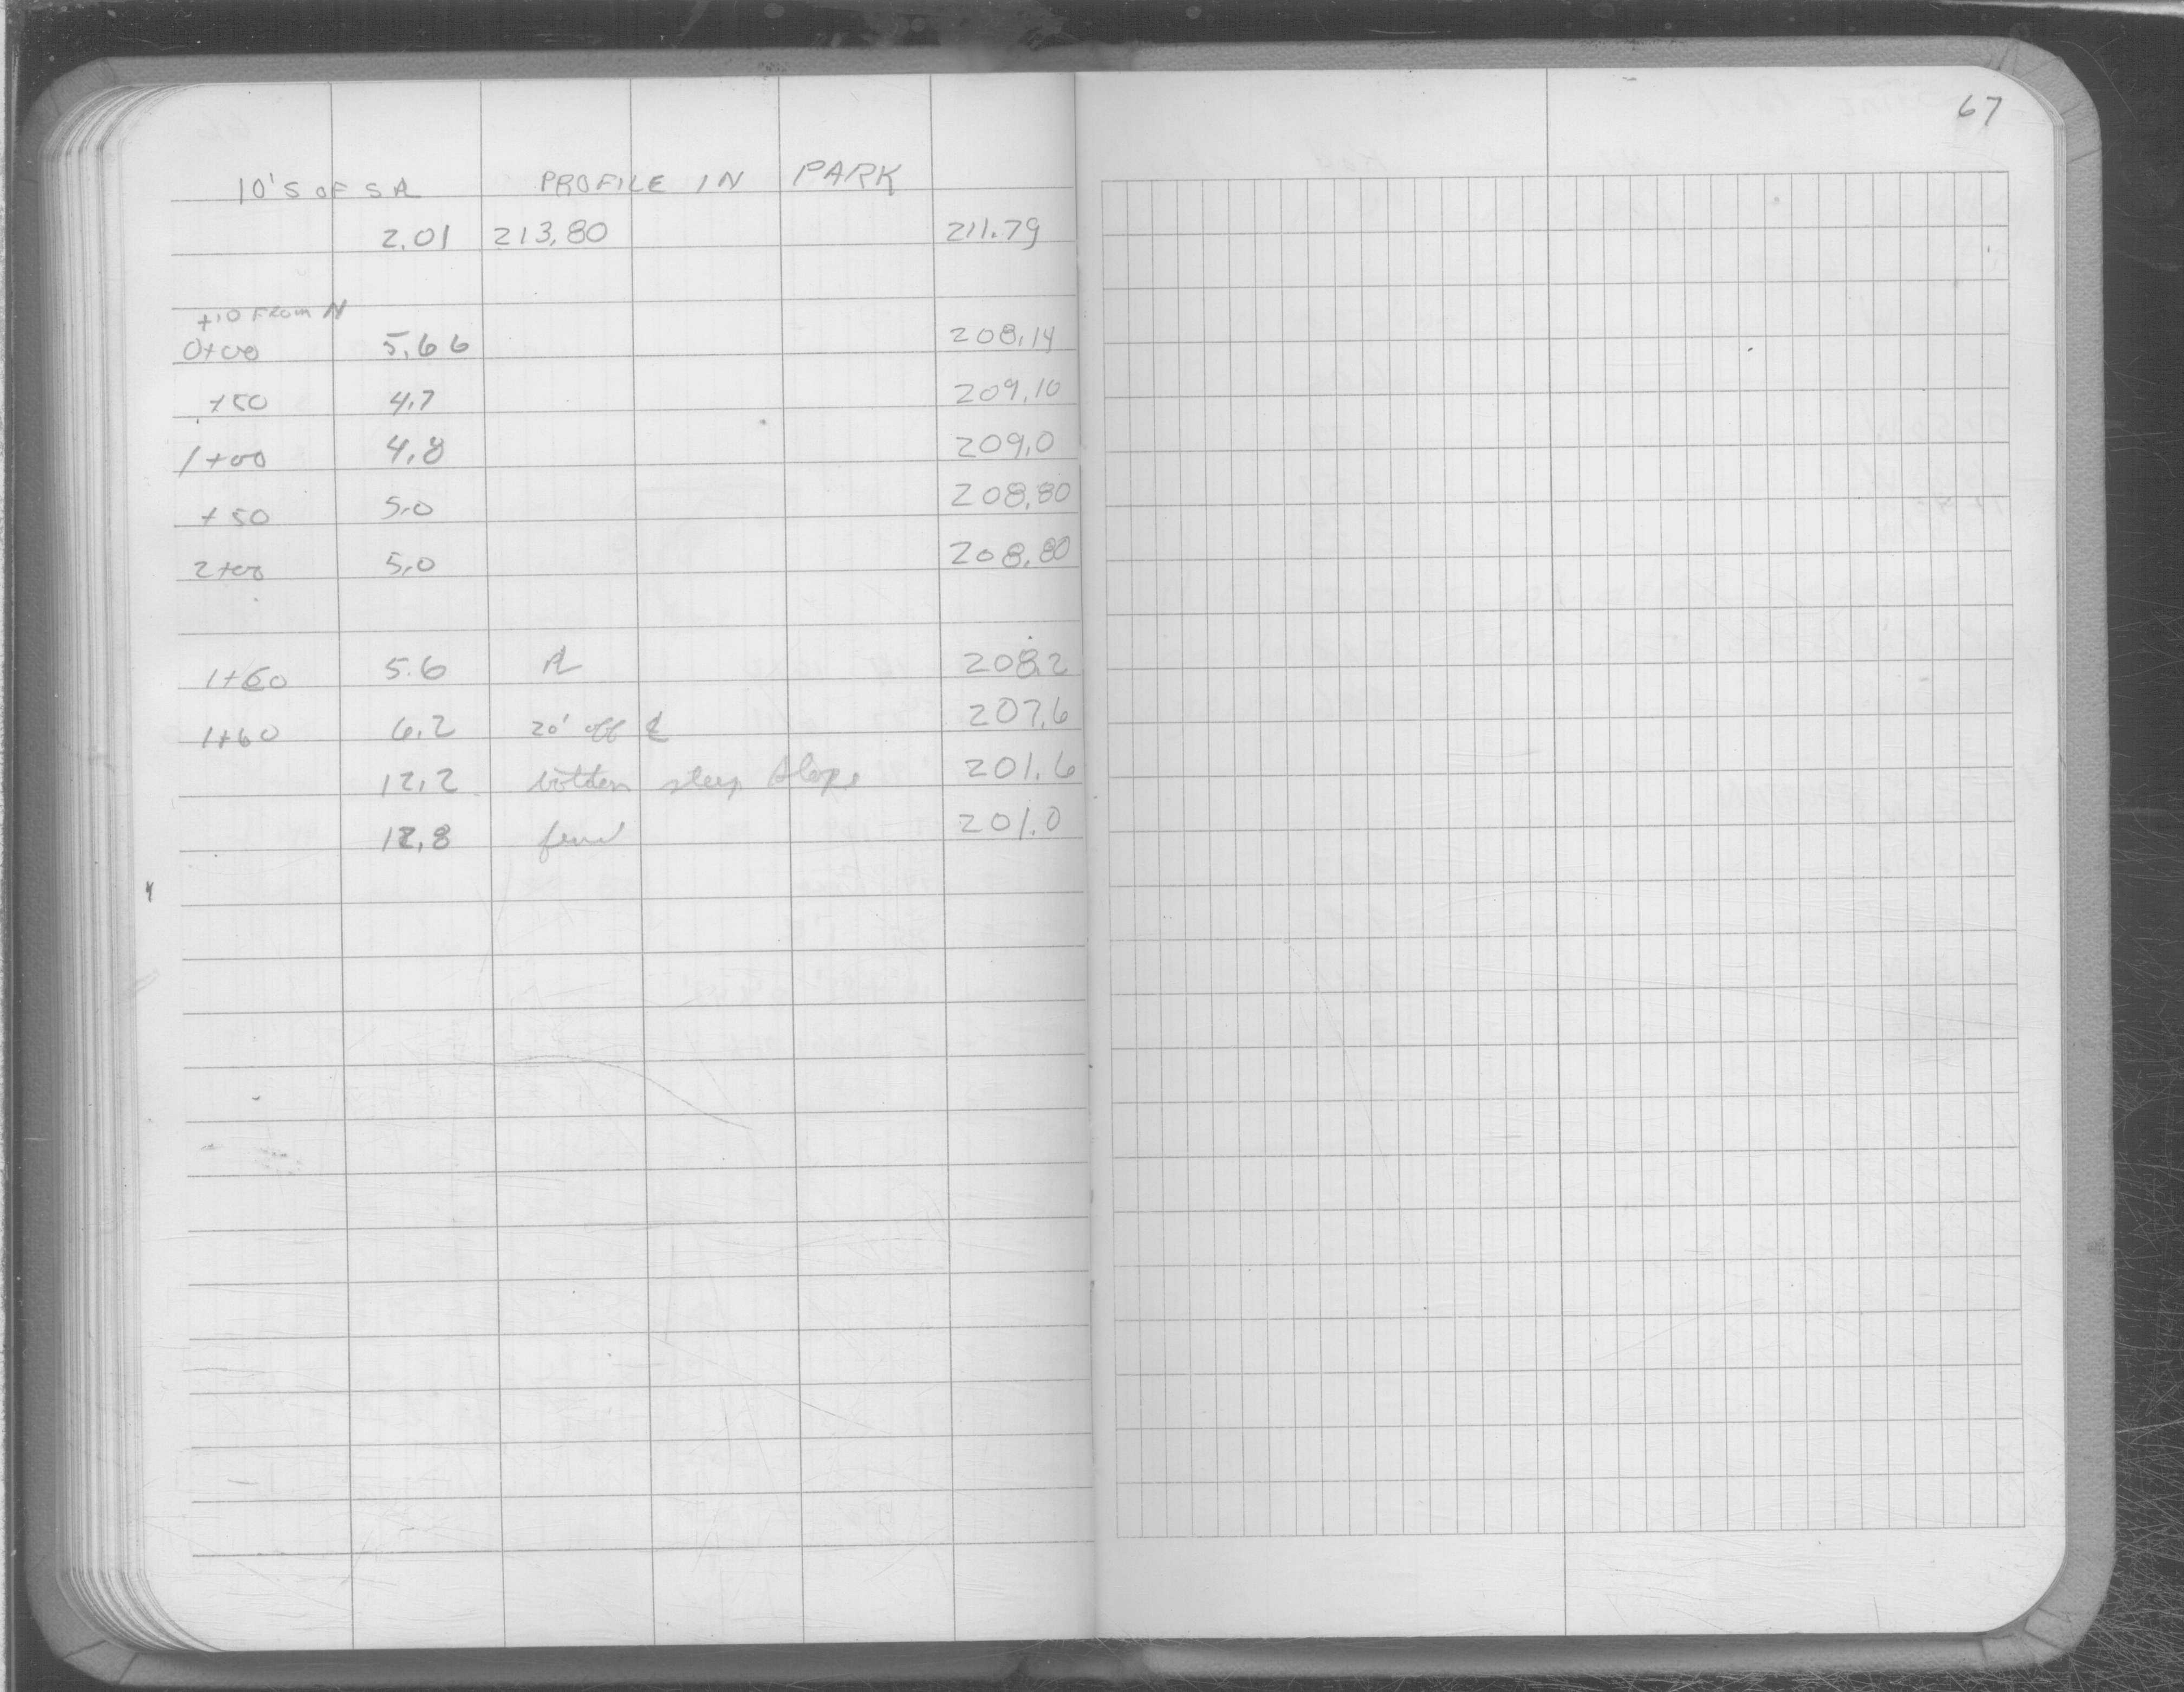 67
10'S OF S PL PROFILE IN PARK
2.01 213.80 211.79
+10 FROM N
0+00 5.66 208.14
+50 4.7 209.10
1+00 4.8 209.0
+50 5.0 208.80
2+00 5.0 208.80
1+60 5.6 PL 208.2
1+60 6.2 20' off ℄ 207.6
12.2 bottom steep slope 201.6
12.8 201.0